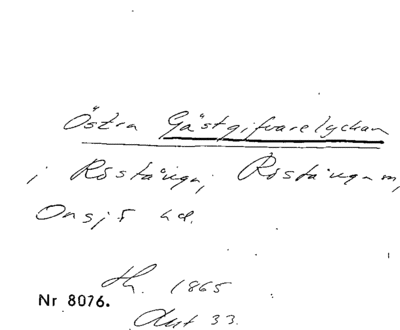 Östra Gästgifvarelyckan
i Röstånga, Röstånga sn,
Onsjö hd.
1865
Nr 8076.
33.